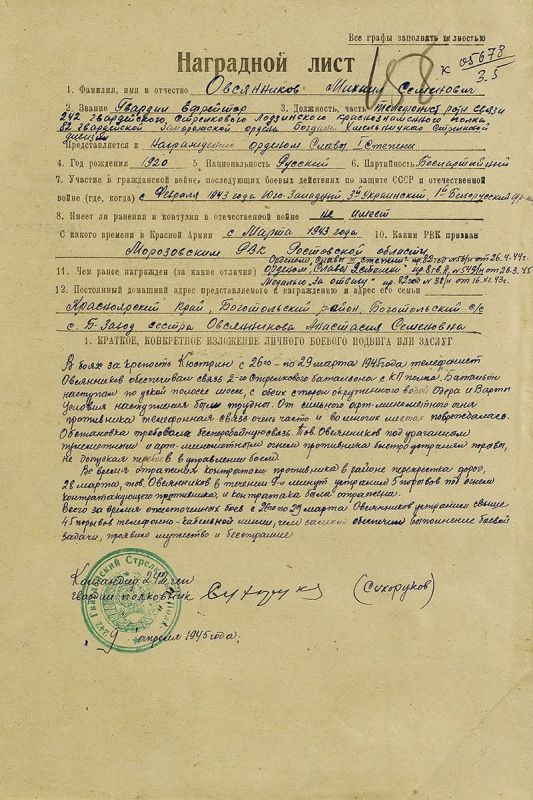 Все графы заполнять полностью
Наградной лист
к 05678
3.5
1. Фамилия, имя и отчество Овсянников Михаил Семенович
2. Звание Гвардии ефрейтор 3. Должность, часть телефонист роты связи
242 гвардейского, стрелкового Лодзинского Краснознаменного полка,
82 гвардейской Запорожской ордена Богдана Хмельницкого Стрелковой
дивизии
Представляется к Награждению орденом Славы I степени
4. Год рождения 1920 5. Национальность Русский 6. Партийность Беспартийный
7. Участие в гражданской войне, последующих боевых действиях по защите СССР и отечественной
войне (где, когда) с Февраля 1943 года Юго-Западный 3й Украинский, 1й Белорусский фр-ты
8. Имеет ли ранения и контузии в отечественной войне не имеет
С какого времени в Красной Армии с Марта 1943 года 10. Каким РВК призван
Морозовским РВК Ростовской области
Орденом „Славы III степени" пр. 82 гсд от 26.4.44г.
11. Чем ранее награжден (за какие отличия) орденом „Славы 2 степени" пр. 8 гв. А. № 549/н от 26.3.45
Медалью „За отвагу" пр. 82 гсд № 38/н от 16.XI.43г.
12. Постоянный домашний адрес представляемого к награждению и адрес его семьи
Красноярский край, Боготольский район, Боготольский с/с
с. Б-Завод сестра Овсянникова Анастасия Семеновна
1. КРАТКОЕ, КОНКРЕТНОЕ ИЗЛОЖЕНИЕ ЛИЧНОГО БОЕВОГО ПОДВИГА ИЛИ ЗАСЛУГ
В боях за крепость Кюстрин с 26го - по 29 марта 1945 года телефонист
Овсянников обеспечивал связь 2-го Стрелкового батальона с КП полка. Батальон
наступал по узкой полоске шоссе, с обеих сторон окруженного водой Одера и Варты
Условия наступления были трудны. От сильного арт-минометного огня
противника телефонная связь очень часто и во многих местах повреждалась.
Обстановка требовала бесперебойную связь. Тов. Овсянников под ураганным
и арт-минометным огнем противника быстро устранял порывы,
не допуская перебоев в управлении боем.
Во время отражения контратаки противника в районе перекрестка дорог,
28 марта, тов. Овсянников в течении минут устранил 5 порывов под огнем
контратакующего противника, и контратака была отражена.
Всего за время ожесточенных боев с 26го по 29 марта Овсянников устранил свыше
45 порывов телефонно-кабельной линии, чем самым обеспечил выполнение боевой
задачи, проявив мужество и бесстрашие
Командир 242 гсп
гвардии полковник (Сухоруков)
242 Гвардейский Стрелковый Полк
„9" апреля 1945 года,